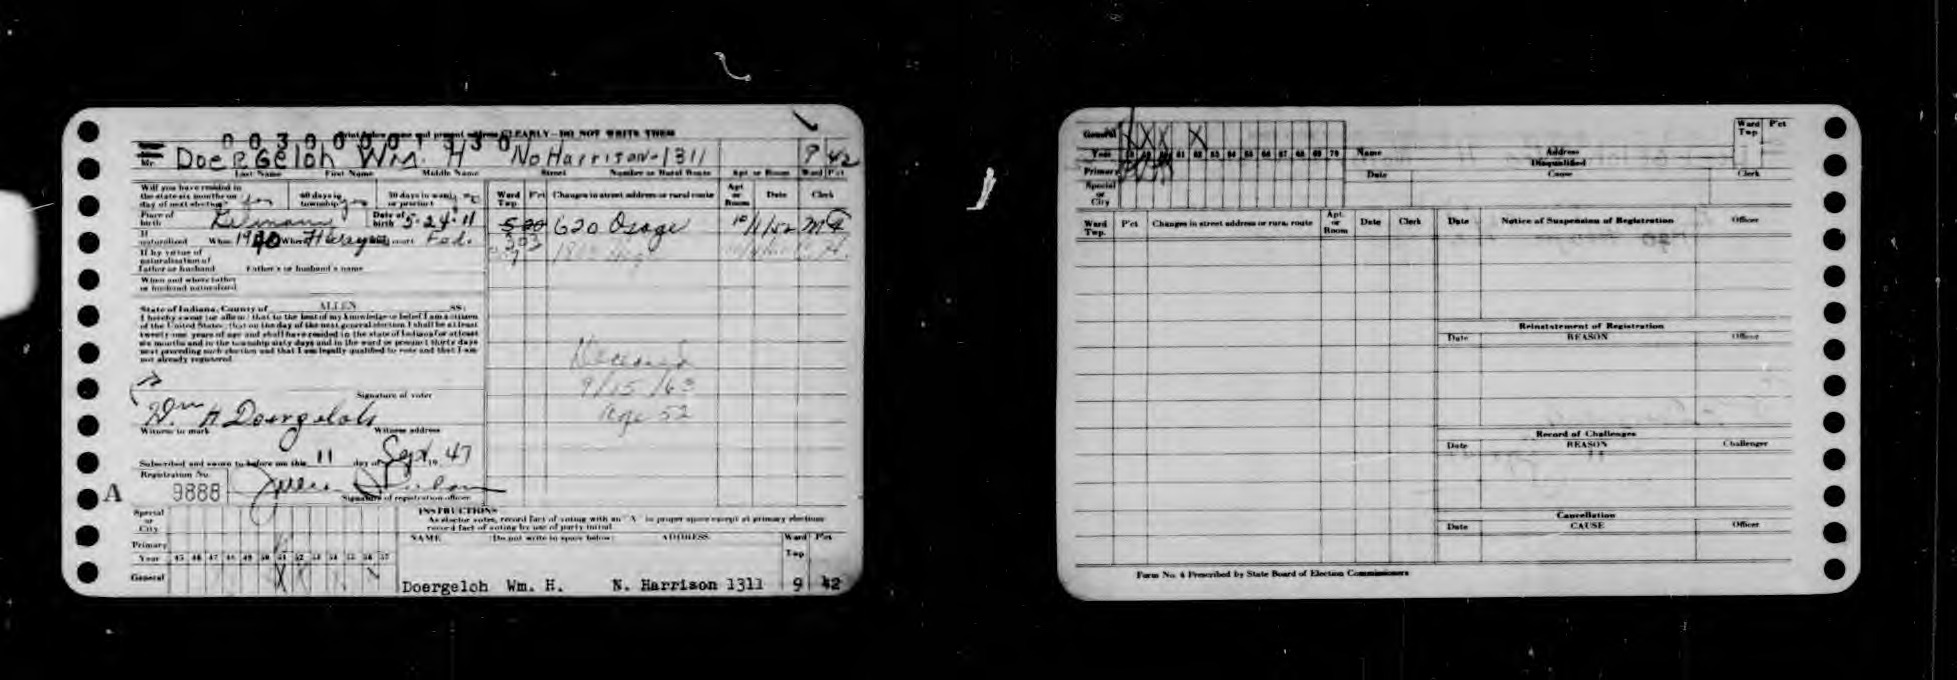 00300001330
Print below name and present address CLEARLY—DO NOT WRITE THEM
Mr. Doergeloh Wm. H No Harrison-1311 9 42
Last Name First Name Middle Name Street Number or Rural Route Apt or Room Ward P'ct
Will you have resided in the state six months on day of next election yes 60 days in township yes 30 days in ward or precinct
Ward Twp. P'ct Changes in street address or rural route Apt or Room Date Clerk
Place of birth Date of birth 5-24-11
620 Osage 10/1/52
If naturalized When Where court Fed.
303
If by virtue of naturalization of father or husband Father's or husband's name
When and where father or husband naturalized
State of Indiana, County of ALLEN SS:
I hereby swear (or affirm) that to the best of my knowledge or belief I am a citizen
of the United States; that on the day of the next general election I shall be at least
twenty-one years of age and shall have resided in the state of Indiana for at least
six months and in the township sixty days and in the ward or precinct thirty days
next preceding such election and that I am legally qualified to vote and that I am
not already registered.
Deceased
9/15/63
Age 52
Signature of voter
Wm H Doergeloh
Witness to mark Witness address
Subscribed and sworn to before me this 11 day of Sept. 19 47
Registration No.
A 9888
Signature of registration officer
INSTRUCTIONS
As elector votes, record fact of voting with an "X" in proper space except at primary elections
record fact of voting by use of party initial.
Special or City
Primary
Year 45 46 47 48 49 50 51 52 53 54 55 56 57
General X X
NAME (Do not write in space below) ADDRESS Ward Twp P'ct
Doergeloh Wm. H. N. Harrison 1311 9 42
General X X X X
Year 61 62 63 64 65 66 67 68 69 70
Primary
Special or City
Name Address Ward Twp. P'ct
Disqualified
Date Cause Clerk
Ward Twp. P'ct Changes in street address or rural route Apt. or Room Date Clerk
Date Notice of Suspension of Registration Officer
Reinstatement of Registration
Date REASON Officer
Record of Challenges
Date REASON Challenger
Cancellation
Date CAUSE Officer
Form No. 4 Prescribed by State Board of Election Commissioners